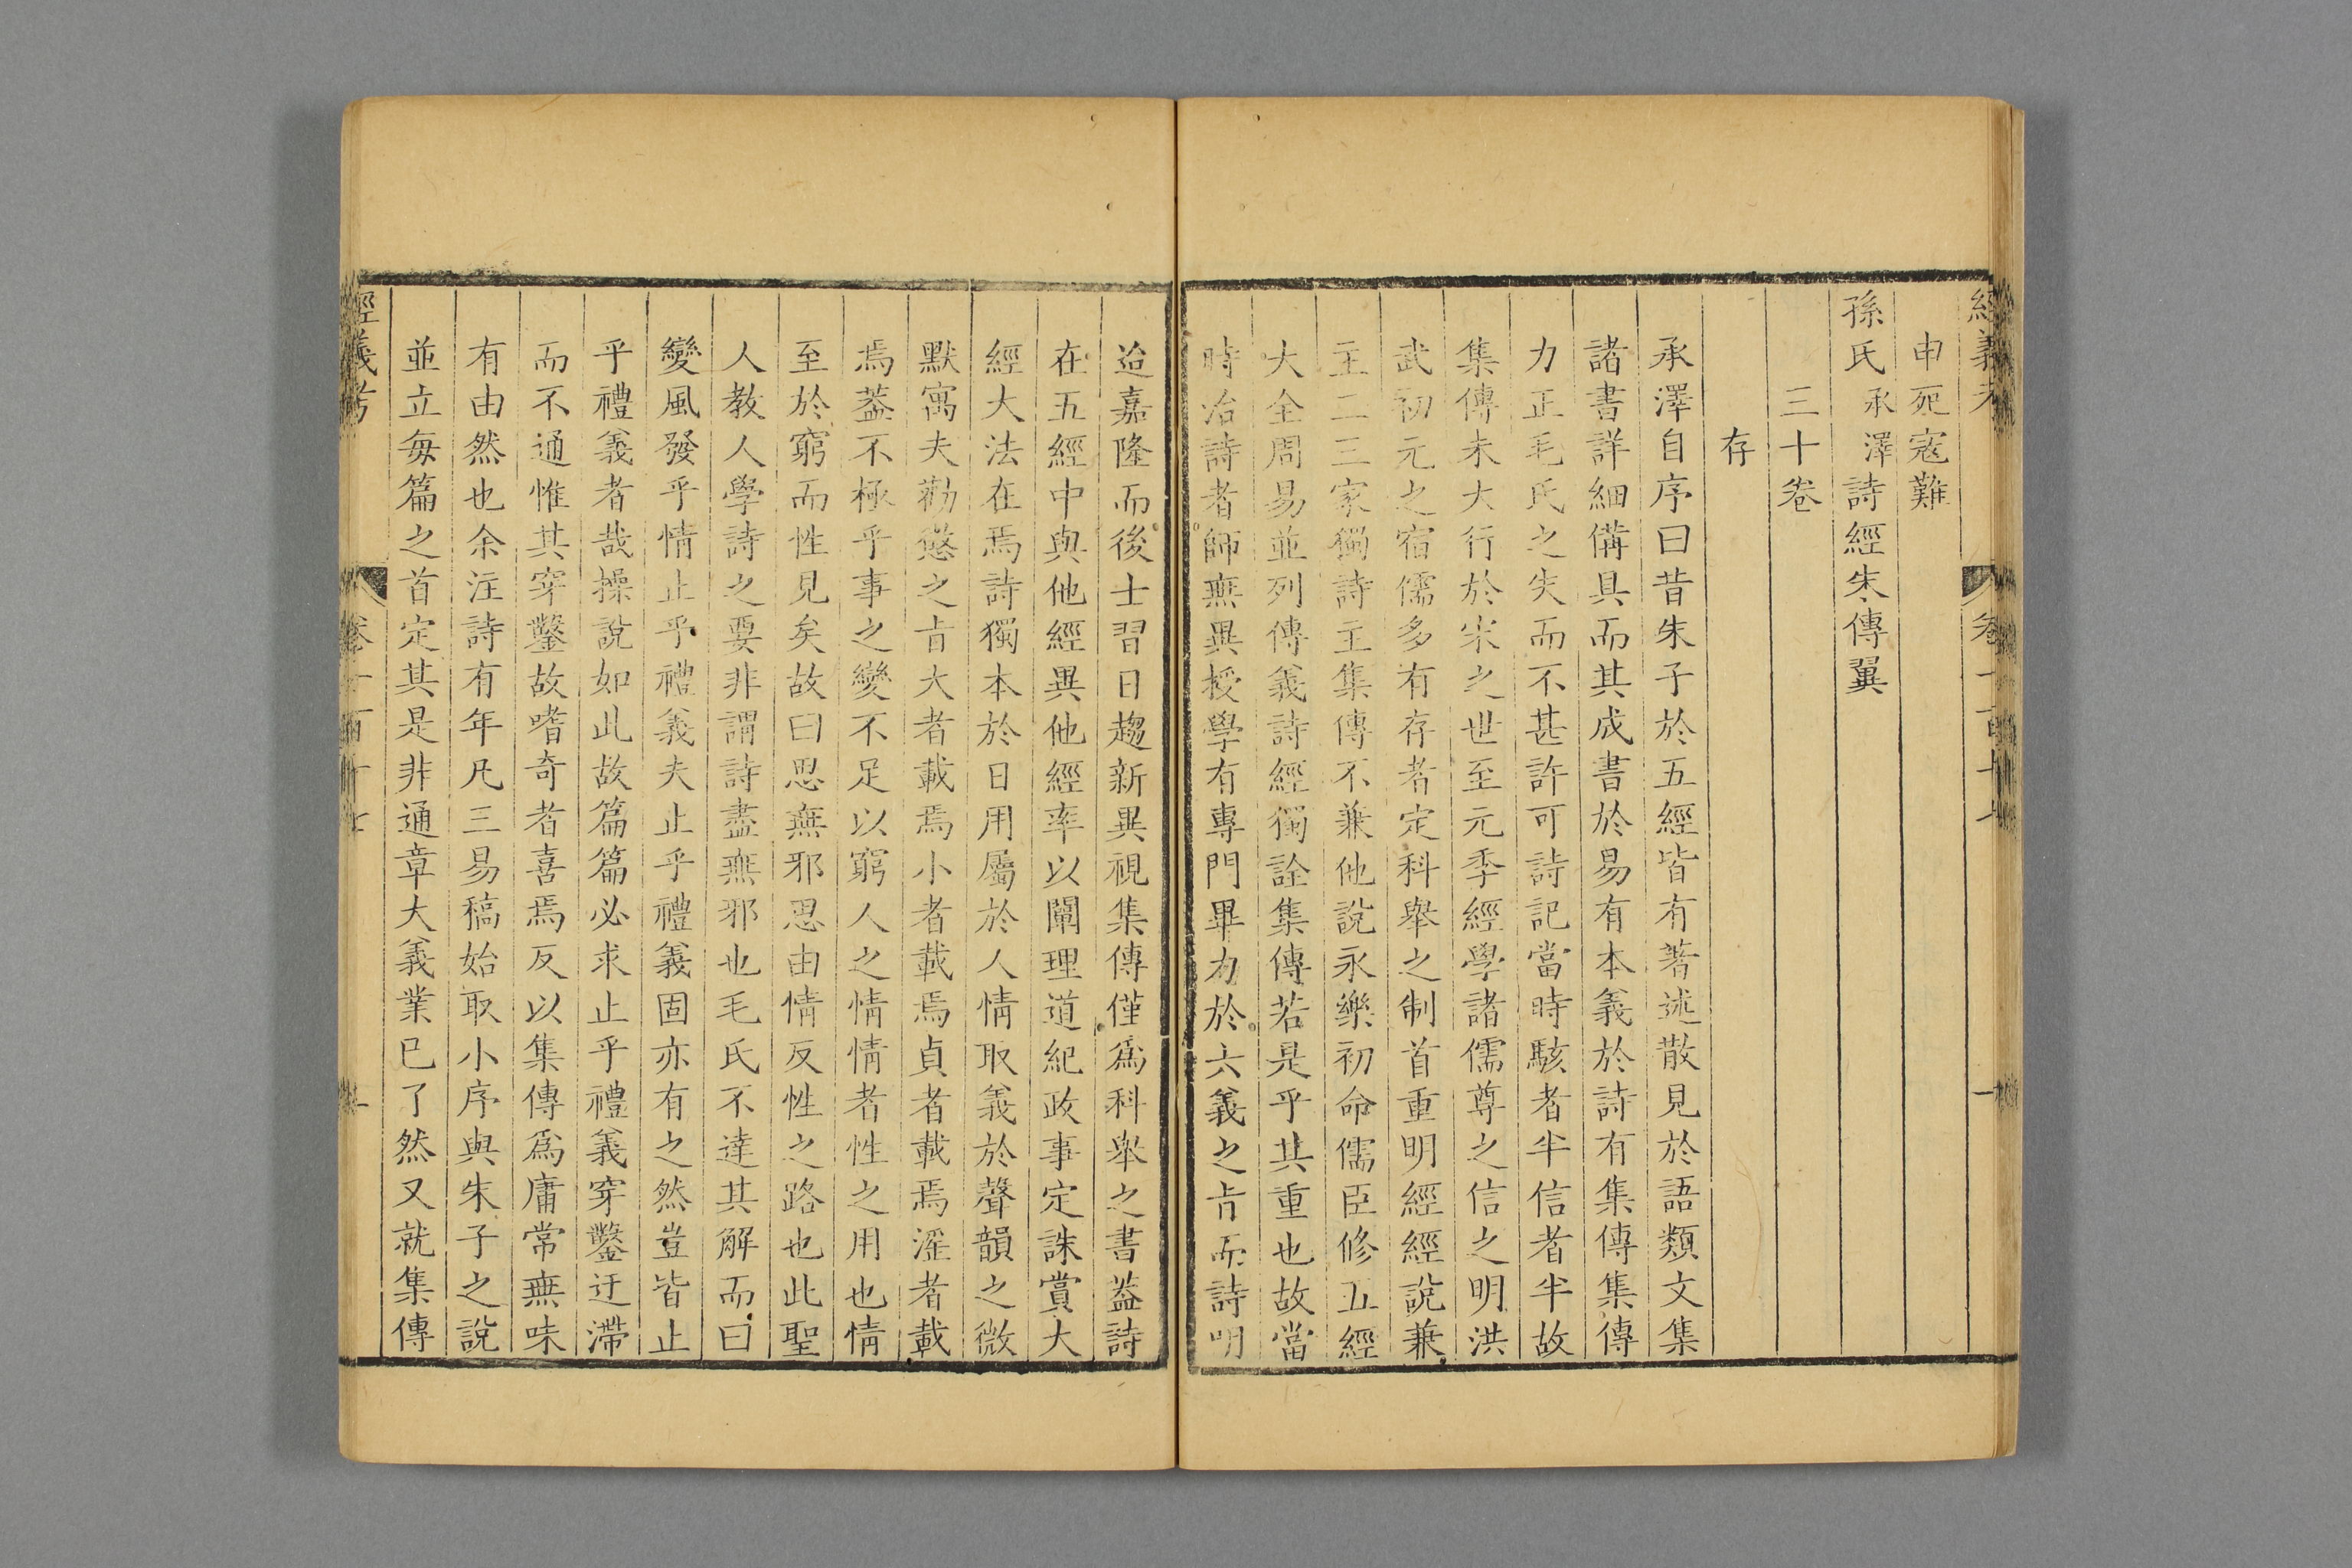 申死寇難
孫氏承澤詩經朱傳翼
三十卷
存
承澤自序曰昔朱子於五經皆有著述散見於語類文集
諸書詳細備具而其成書於易有本義於詩有集傳集傳
力正毛氏之失而不甚許可詩記當時駭者半信者半故
集傳未大行於宋之世至元季經學諸儒尊之信之明洪
武初元之宿儒多有存者定科舉之制首重明經經說兼
主二三家獨詩主集傳不兼他說永樂初命儒臣修五經
大全周易並列傳義詩經獨詮集傳若是乎其重也故當
時治詩者師無異授學有專門畢力於六義之旨而詩明
迨嘉隆而後士習日趨新異視集傳僅爲科舉之書葢詩
在五經中與他經異他經率以闡理道紀政事定誅賞大
經大法在焉詩獨本於日用屬於人情取義於聲韻之微
默寓夫勸懲之旨大者載焉小者載焉貞者載焉淫者載
焉葢不極乎事之變不足以窮人之情情者性之用也情
至於窮而性見矣故曰思無邪思由情反性之路也此聖
人教人學詩之要非謂詩盡無邪也毛氏不達其解而曰
變風發乎情止乎禮義夫止乎禮義固亦有之然豈皆止
乎禮義者哉操說如此故篇篇必求止乎禮義穿鑿迂滯
而不通惟其穿鑿故嗜奇者喜焉反以集傳爲庸常無味
有由然也余注詩有年凡三易稿始取小序與朱子之說
並立每篇之首定其是非通章大義業已了然又就集傳
經義考 卷一百十七